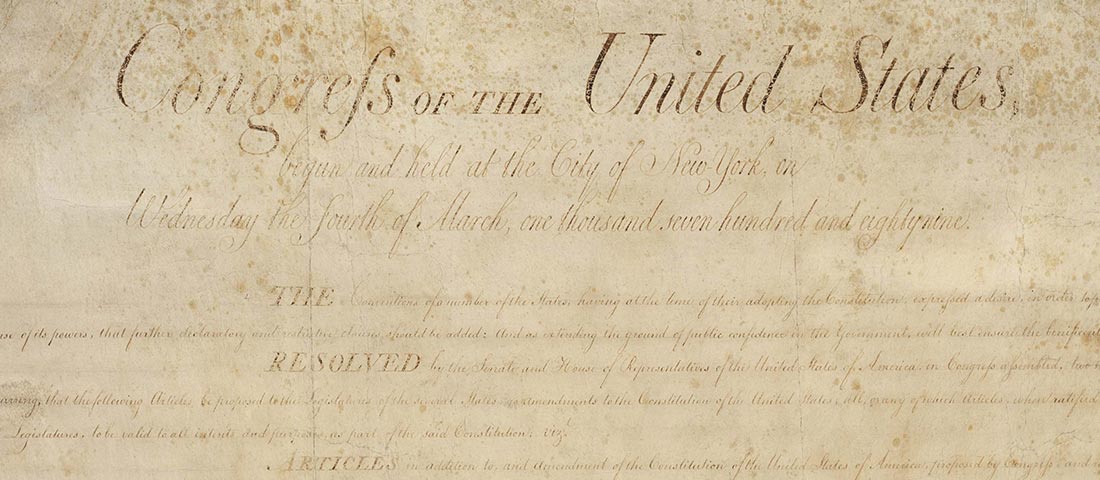 Congreſs OF THE United States,
begun and held at the City of New York, on
Wednesday the fourth of March, one thousand seven hundred and eighty nine.
THE Conventions of a number of the States, having at the time of their adopting the Constitution, expressed a desire, in order to
use of its powers, that further declaratory and restrictive clauses should be added: And as extending the ground of public confidence in the Government, will best ensure the
RESOLVED by the Senate and House of Representatives of the United States of America, in Congreſs aſsembled, two
that the following Articles be proposed to the Legislatures of the several States, as amendments to the Constitution of the United States, all, or any of which Articles, when ratified
Legislatures, to be valid to all intents and purposes, as part of the said Constitution; vizt
ARTICLES in addition to, and Amendment of the Constitution of the United States of America, proposed by Congreſs, and